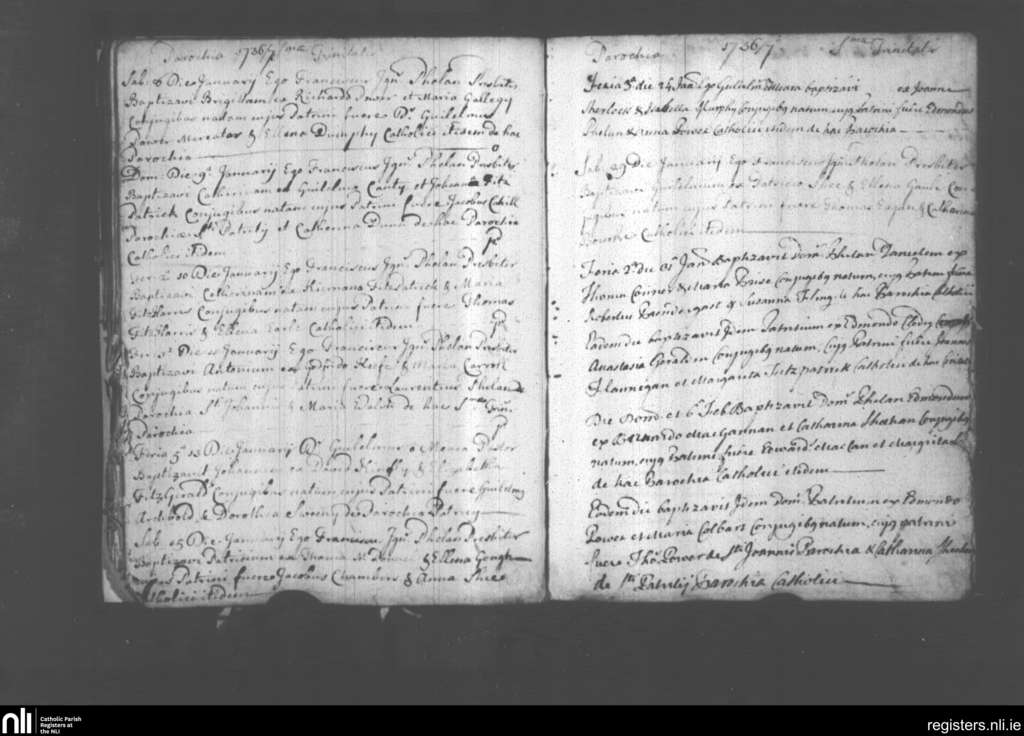 Parochia 1736/7 Smæ Trinitatis
Sab. 8 Die January Ego Franciscus Ign. Phelan Presbiter
Baptizavi Brigittam ex Richardo Power et Maria
Conjugibus natam cujus Patrini fuere Dr. Guilelmus
Power Mercator & Ellena Dumphy Catholici Itidem de hac
Parochia
Dom. Die 9 January Ego Franciscus Ign. Phelan Presbiter
Baptizavi Catherinam ex Guilelmo Canty et Johanna Fitz
Patrick Conjugibus natam cujus Patrini fuere Jacobus Cahill
Parochiæ Sti Patritij et Catherina Dunn de hac Parochia
Catholici Itidem
2 10 Die January Ego Franciscus Ign. Phelan Presbiter
Baptizavi Catherinam ex Kiernano Fitzpatrick & Maria
FitzHarris Conjugibus natam cujus Patrini fuere Thomas
FitzHarris & Ellena Earle Catholici Itidem
Die January Ego Franciscus Ign. Phelan Presbiter
Baptizavi Antonium ex Keeffe & Maria Carroll
Conjugibus natum cujus Patrini fuere Laurentius Phelan
Parochia Sti Johannis & Maria Walsh de hac Smæ Trin.
Parochia
Feria 5 13 Die January Dr. Guilelmus o Meara Pastor
Baptizavit Johannem ex David & Elizabetha
FitzGerald Conjugibus natum cujus Patrini fuere Guilelmus
Archbold & Dorothea Sweeny de Parochia Patricij
Sab. 15 Die January Ego Franciscus Ign. Phelan Presbiter
Baptizavi Patricium ex Thoma & Ellena Gough
cujus Patrini fuere Jacobus Chambers & Anna Shee
Catholici Itidem
Parochia 1736/7 Smæ Trinitatis
Feria die 24 Jan. Ego Guilielm. oMeara baptizavi ex Joanne
Sherlock & Isabella Murphy Conjugibq natum cujq Patrini fuere Edmondus
Phelan & Anna Power Catholici itidem de hac Parochia
Sab. 29 Die January Ego Franciscus Ign. Phelan Presbiter
Baptizavi Guilelmum ex Patricio Shee & Ellena Gaule Con-
jugibus natum cujus Patrini fuere Thomas Fagan & Catharina
Bourke Catholici Itidem
Feria 2a die 31 Jan. Baptizavit Dom. Phelan Danielem ex
Thoma Connor & Maria Buse Conjugibq natum, cujq Patrini fuere
Robertus Prendergast & Susanna Fling de hac Parochia Catholici
Eadem die baptizavit Idem Patritium ex Edmondo
Anastasia Geraldin Conjugibq natum, cujq Patrini fuere Joannes
Flannegan et Margarita Fitzpatrick Catholici de hac
Die Dond. et 6a Feb. Baptizavit Dom. Phelan Edwardum
ex Bernardo MacGannan et Catharina Sheehan Conjugibq
natum, cujq Patrini fuere Edward. MacCan et Margarita
de hac Parochia Catholici itidem
Eadem die baptizavit Idem Dom. Patritium ex Edmundo
Power et Maria Colbart Conjugibq natum, cujq patrini
fuere Tho. Power de Sti Joannis Parochia & Catharina Sheehan
de Sti Patritij Parochia Catholici
nli Catholic Parish
Registers at
the NLI
registers.nli.ie